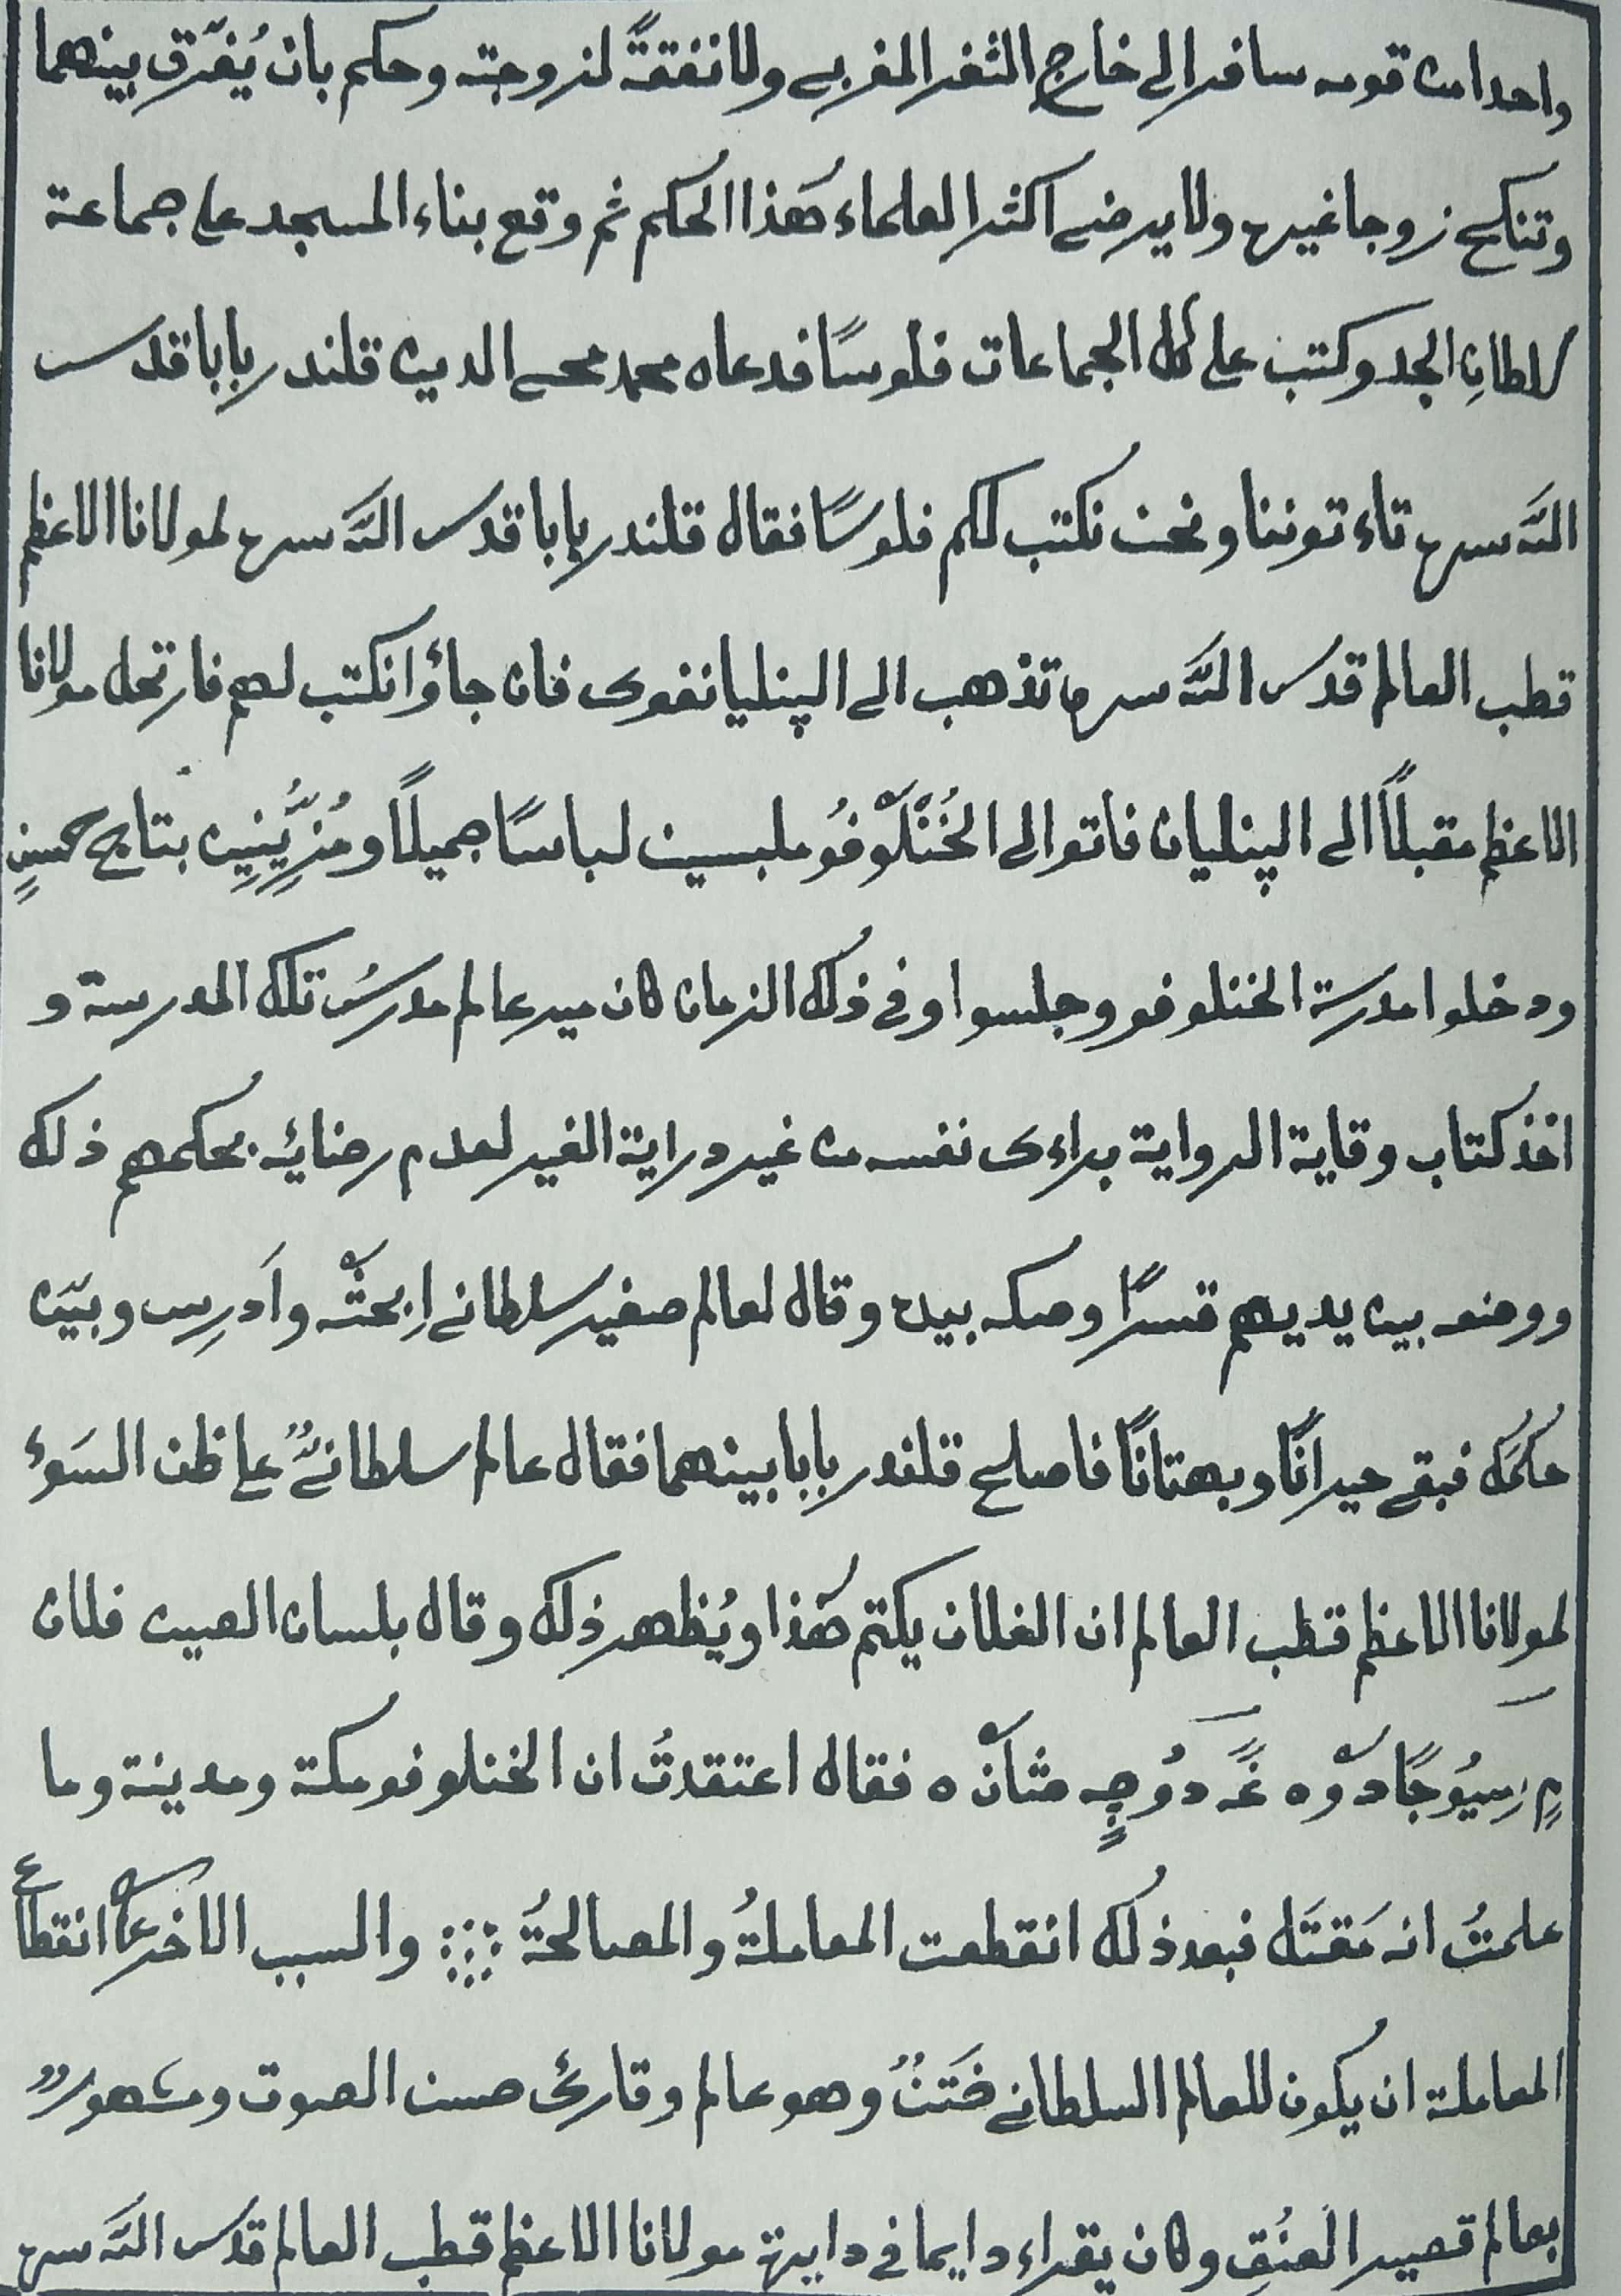 واحدا من قومه سافر الى خارج الثغر المغربى ولا نفقةً لزوجته وحكم بان يُفَرّق بينهما
وتنكح زوجا غيره ولا يرضى اكثر العلماء هَذا الحكم ثم وقع بناء المسجد على جماعة
الجد وكتب على كل الجماعات فلوسًا فدعاه محمد محى الدين قلندر بابا قدس
اللّٰه سره تاء توننا ونحن نكتب لكم فلوسًا فقال قلندر بابا قدس اللّٰه سره لمولانا الاعظم
قطب العالم قدس اللّٰه سره ما تذهب الى الپنليا نفوى فان جاؤا نكتب لهم فارتحل مولانا
الاعظم مقبلًا الى الپنليان فاتوا الى الخُنْلَوْفُو ملبسين لباسًا جميلًا ومُزَيَّنِين بتاج حسنٍ
ودخلوا مدرسة الخنلوفو وجلسوا وفى ذلك الزمان كان مير عالم مدرسُ تلك المدرسة و
اخذ كتاب وقاية الرواية براءى نفسه من غير دراية الغير لعدم رضائه بحكمهم ذلك
ووضعه بين يديهم قسرًا وصكه بيده وقال لعالم صغير سلطانى اِبحثْه واَدرِس وبيّن
حكمَك فبقى حيرانًا وبهتانًا فاصلح قلندر بابا بينهما فقال عالم سلطانىٌّ على ظن السَوء
لمولانا الاعظم قطب العالم ان الفلان يكتم هَذا ويُظهر ذلك وقال بلسان الصين فلان
فقال اعتقدتُ ان الخنلوفو مكة ومدينة وما
علمتُ انه مَقتَل فبعد ذلك انقطعت المعاملةُ والمصالحةُ ؞ والسبب الاخر على انقطاع
المعاملة ان يكون للعالم السلطانى خَتَنٌ وهو عالم وقارئ حسن الصوت ومشهورٌ
بعالم قصير العنُقِ وكان يقراء دايما فى دايرة مولانا الاعظم قطب العالم قدس اللّٰه سره